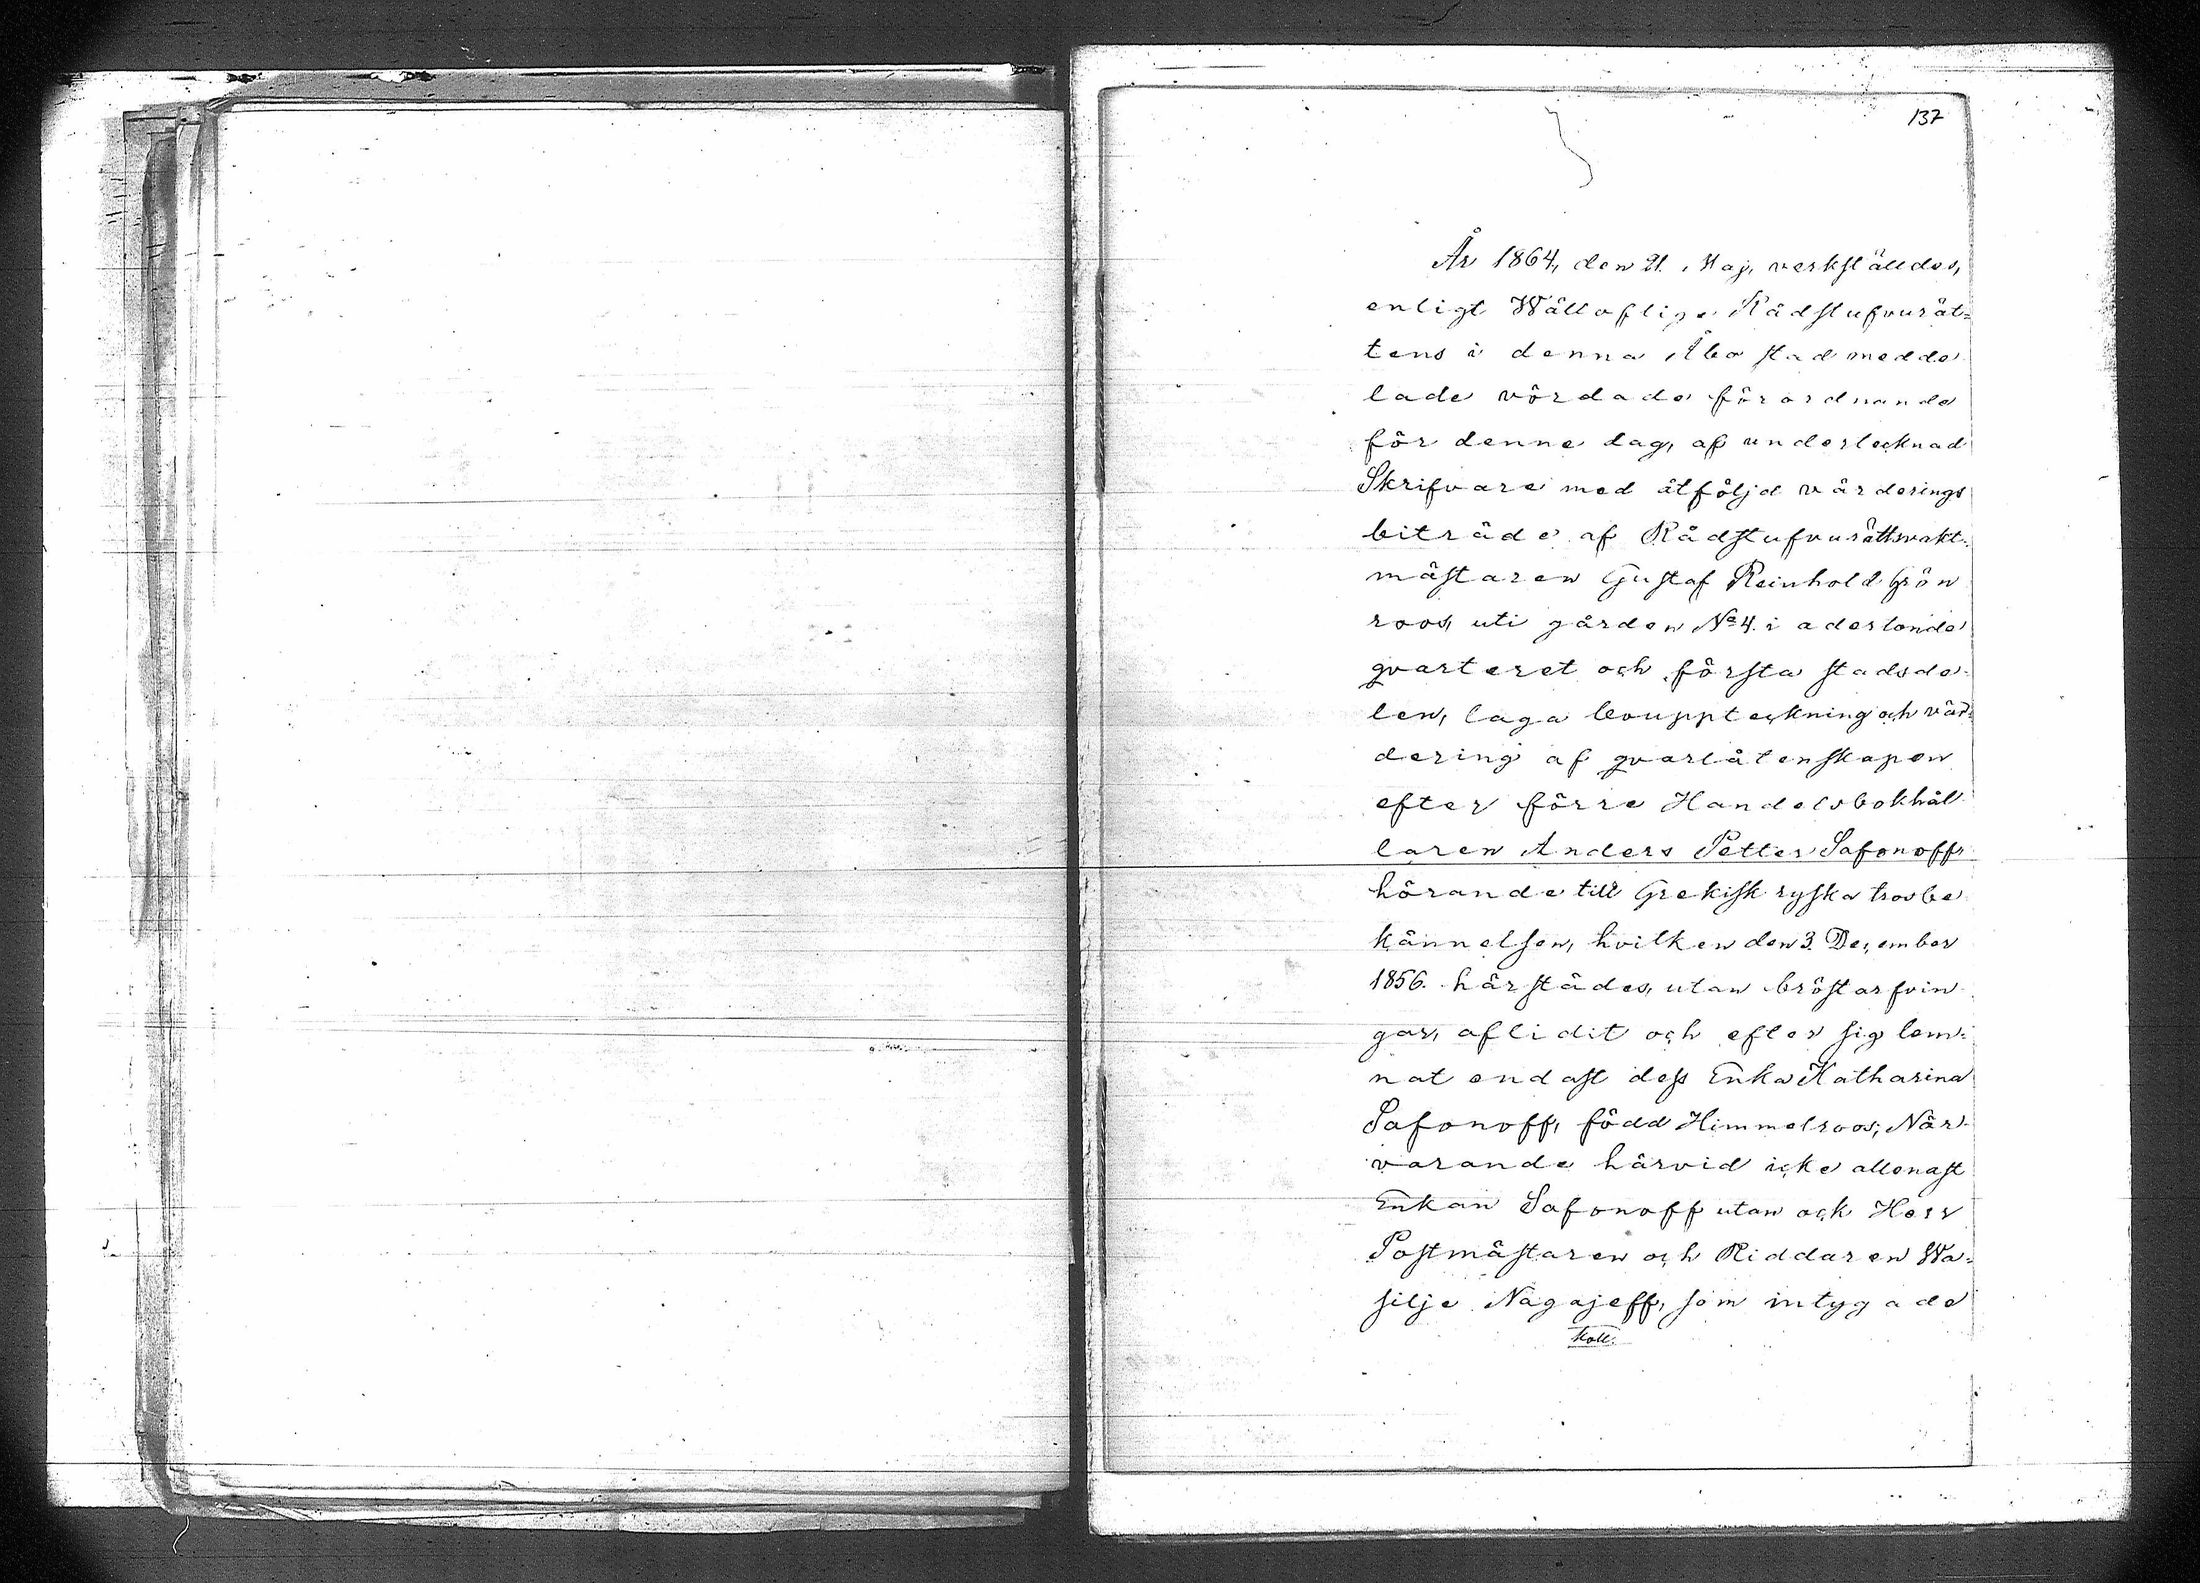 137
År 1864, den 21. Maj, verkställdes,
enligt Wälloflige Rådstufvurät=
tens i denna Åbo stad medde
lade vördade förordnande
för denne dag, af undertecknad
Skrifvare med åtföljd värderings
biträde af Rådstufvurättsvakt=
mästaren Gustaf Reinhold Grön
roos, uti gården No 4. i aderlonde
qvarteret och första stadsde=
len, laga bouppteckning och vär=
dering af qvarlåtenskapen
efter förre Handelsbokhål
laren Anders Petter Safonoff,
hörande till Grekisk ryska trosbe
kännelsen, hvilken den 3. December
1856. härstädes, utan bröstarfvin
gar, aflidit och efter sig lem=
nat endast dess Enka Katharina
Safonoff, född Himmelroos; När=
varande härvid icke allenast
Enkan Safonoff utan ock Herr
Postmästaren och Riddaren Wa=
silje Nagajeff, som intygade